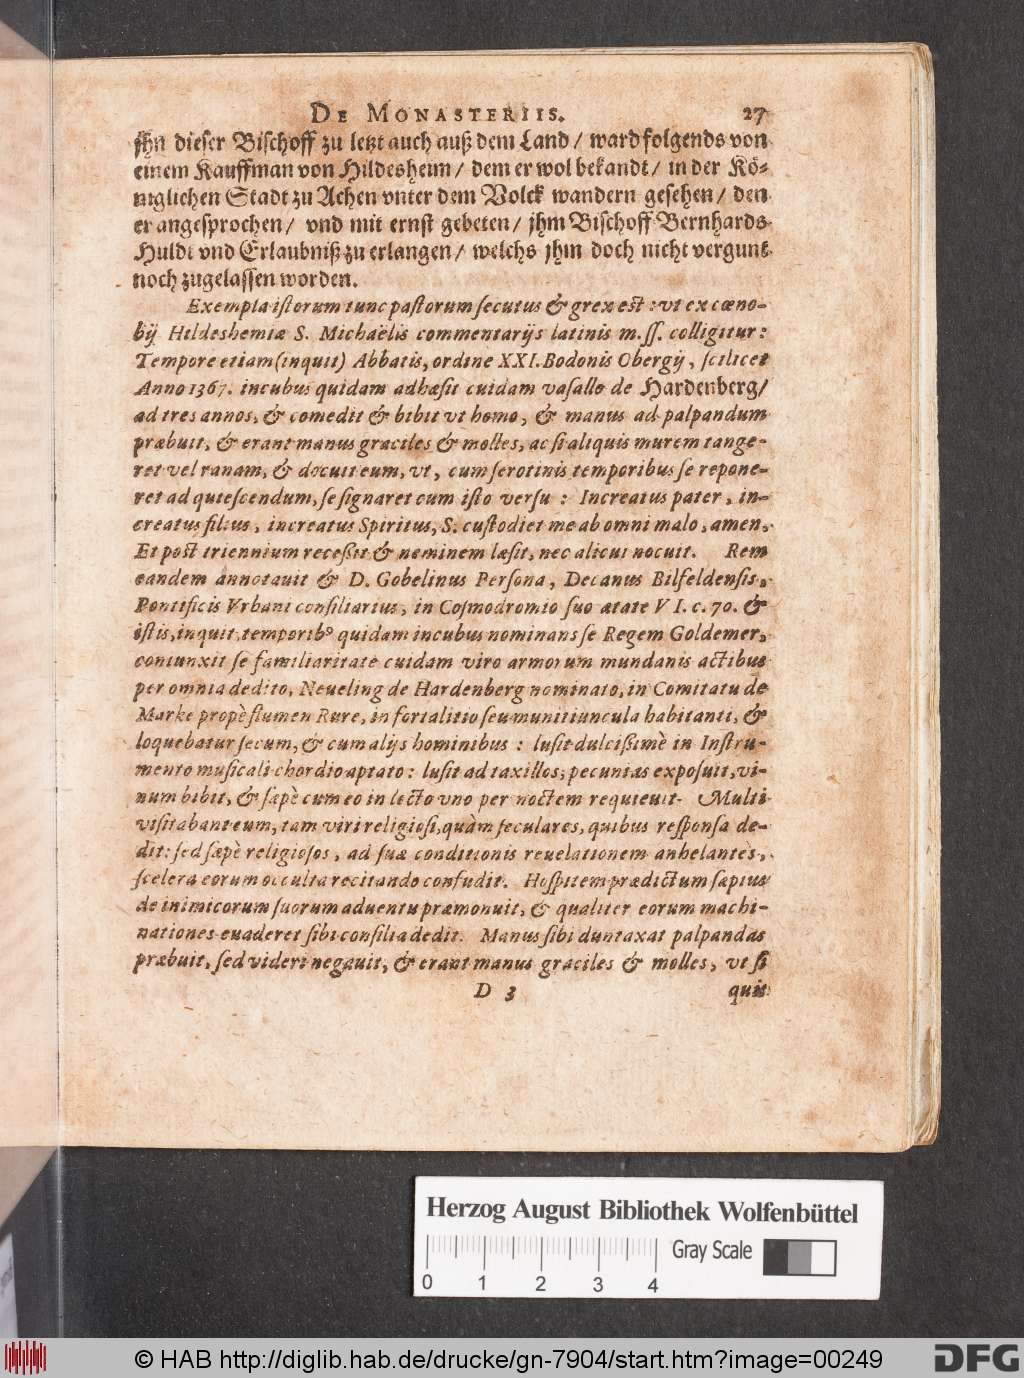 DE MONASTERIIS. 27
jhn dieser Bischoff zu letzt auch auß dem Land / ward folgends von
einem Kauffman von Hildesheim / dem er wol bekandt / in der Kö-
niglichen Stadt zu Achen vnter dem Volck wandern gesehen / den
er angesprochen / vnd mit ernst gebeten / jhm Bischoff Bernhards
Huldt vnd Erlaubniß zu erlangen / welchs jhm doch nicht vergunt
noch zugelassen worden.
Exempla istorum tunc pastorum secutus & grex est : vt ex cœno-
bij Hildeshemiæ S. Michaëlis commentarijs latinis m.ss. colligitur:
Tempore etiam (inquit) Abbatis, ordine XXI. Bodonis Obergij, scilicet
Anno 1367. incubus quidam adhæsit cuidam vasallo de Hardenberg/
ad tres annos, & comedit & bibit vt homo, & manus ad palpandum
præbuit, & erant manus graciles & molles, ac si aliquis murem tange-
ret vel ranam, & docuit eum, vt, cum serotinis temporibus se repone-
ret ad quiescendum, se signaret cum isto versu : Increatus pater, in-
creatus filius, increatus Spiritus, S. custodiet me ab omni malo, amen.
Et post triennium recessit & neminem læsit, nec alicui nocuit. Rem
eandem annotauit & D. Gobelinus Persona, Decanus Bilfeldensis,
Pontificis Vrbani consiliarius, in Cosmodromio suo ætate VI. c. 70. &
istis, inquit, temporib⁹ quidam incubus nominans se Regem Goldemer,
coniunxit se familiaritate cuidam viro armorum mundanis actibus
per omnia dedito, Neueling de Hardenberg nominato, in Comitatu de
Marke propè flumen Rure, in fortalitio seu munitiuncula habitanti, &
loquebatur secum, & cum alijs hominibus : lusit dulcissimè in Instru-
mento musicali chordio aptato : lusit ad taxillos, pecunias exposuit, vi-
num bibit, & sæpè cum eo in lecto vno per noctem requieuit. Multi
visitabant eum, tam viri religiosi, quàm seculares, quibus responsa de-
dit: sed sæpè religiosos, ad suæ conditionis reuelationem anhelantes,
scelera eorum occulta recitando confudit. Hospitem prædictum sæpius
de inimicorum suorum aduentu præmonuit, & qualiter eorum machi-
nationes euaderet sibi consilia dedit. Manus sibi duntaxat palpandas
præbuit, sed videri negauit, & erant manus graciles & molles, vt si
D 3 quis
Herzog August Bibliothek Wolfenbüttel
Gray Scale
0 1 2 3 4
© HAB http://diglib.hab.de/drucke/gn-7904/start.htm?image=00249
DFG